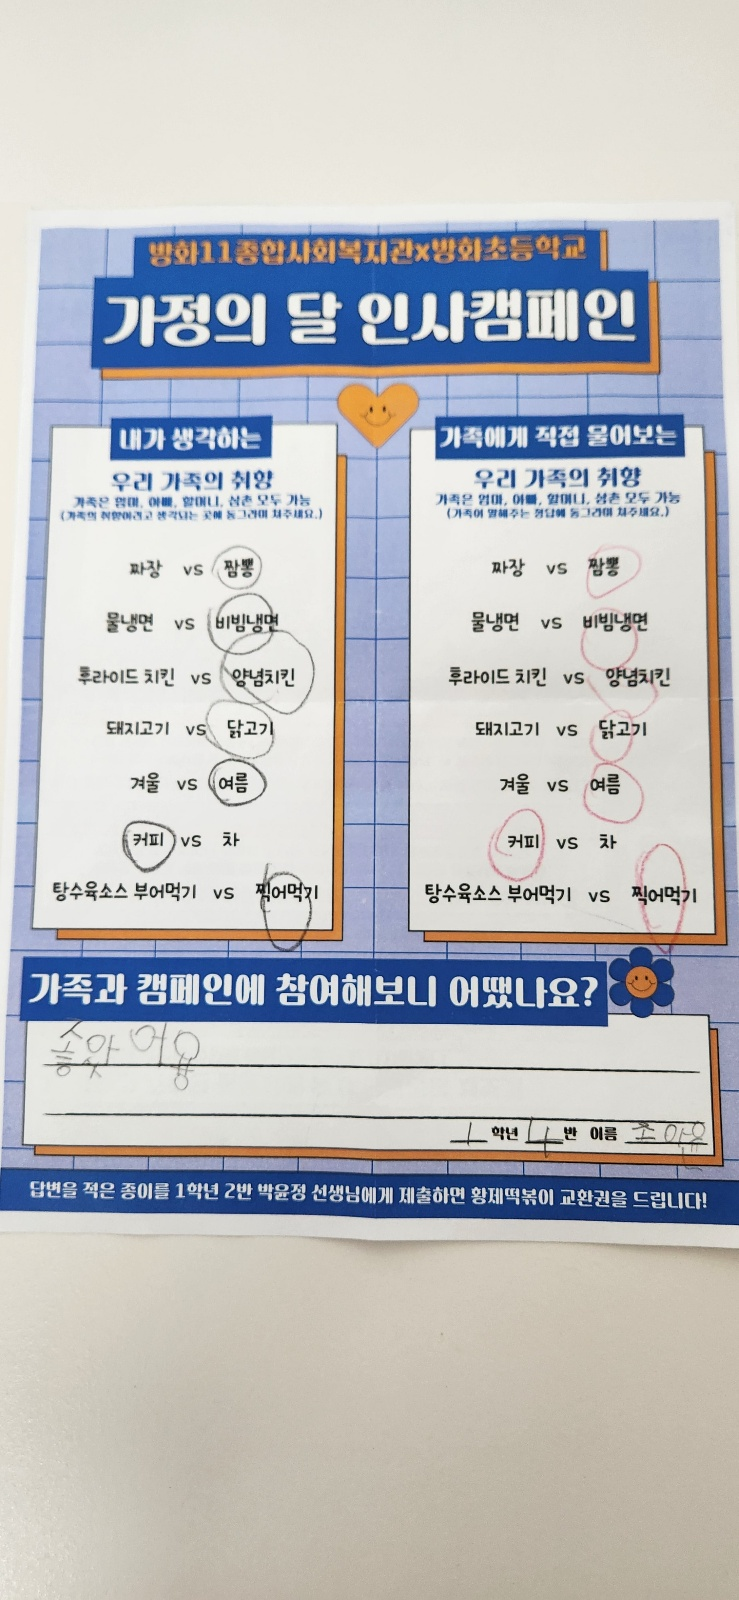 방화11종합사회복지관x방화초등학교
가정의 달 인사캠페인
내가 생각하는
우리 가족의 취향
가족은 엄마, 아빠, 할머니, 삼촌 모두 가능
(가족의 취향이라고 생각되는 곳에 동그라미 쳐주세요.)
짜장 vs 짬뽕
물냉면 vs 비빔냉면
후라이드 치킨 vs 양념치킨
돼지고기 vs 닭고기
겨울 vs 여름
커피 vs 차
탕수육소스 부어먹기 vs 찍어먹기
가족에게 직접 물어보는
우리 가족의 취향
가족은 엄마, 아빠, 할머니, 삼촌 모두 가능
(가족이 말해주는 정답에 동그라미 쳐주세요.)
짜장 vs 짬뽕
물냉면 vs 비빔냉면
후라이드 치킨 vs 양념치킨
돼지고기 vs 닭고기
겨울 vs 여름
커피 vs 차
탕수육소스 부어먹기 vs 찍어먹기
가족과 캠페인에 참여해보니 어땠나요?
좋았어용
1 학년 4 반 이름 조아윤
답변을 적은 종이를 1학년 2반 박윤정 선생님에게 제출하면 황제떡볶이 교환권을 드립니다!